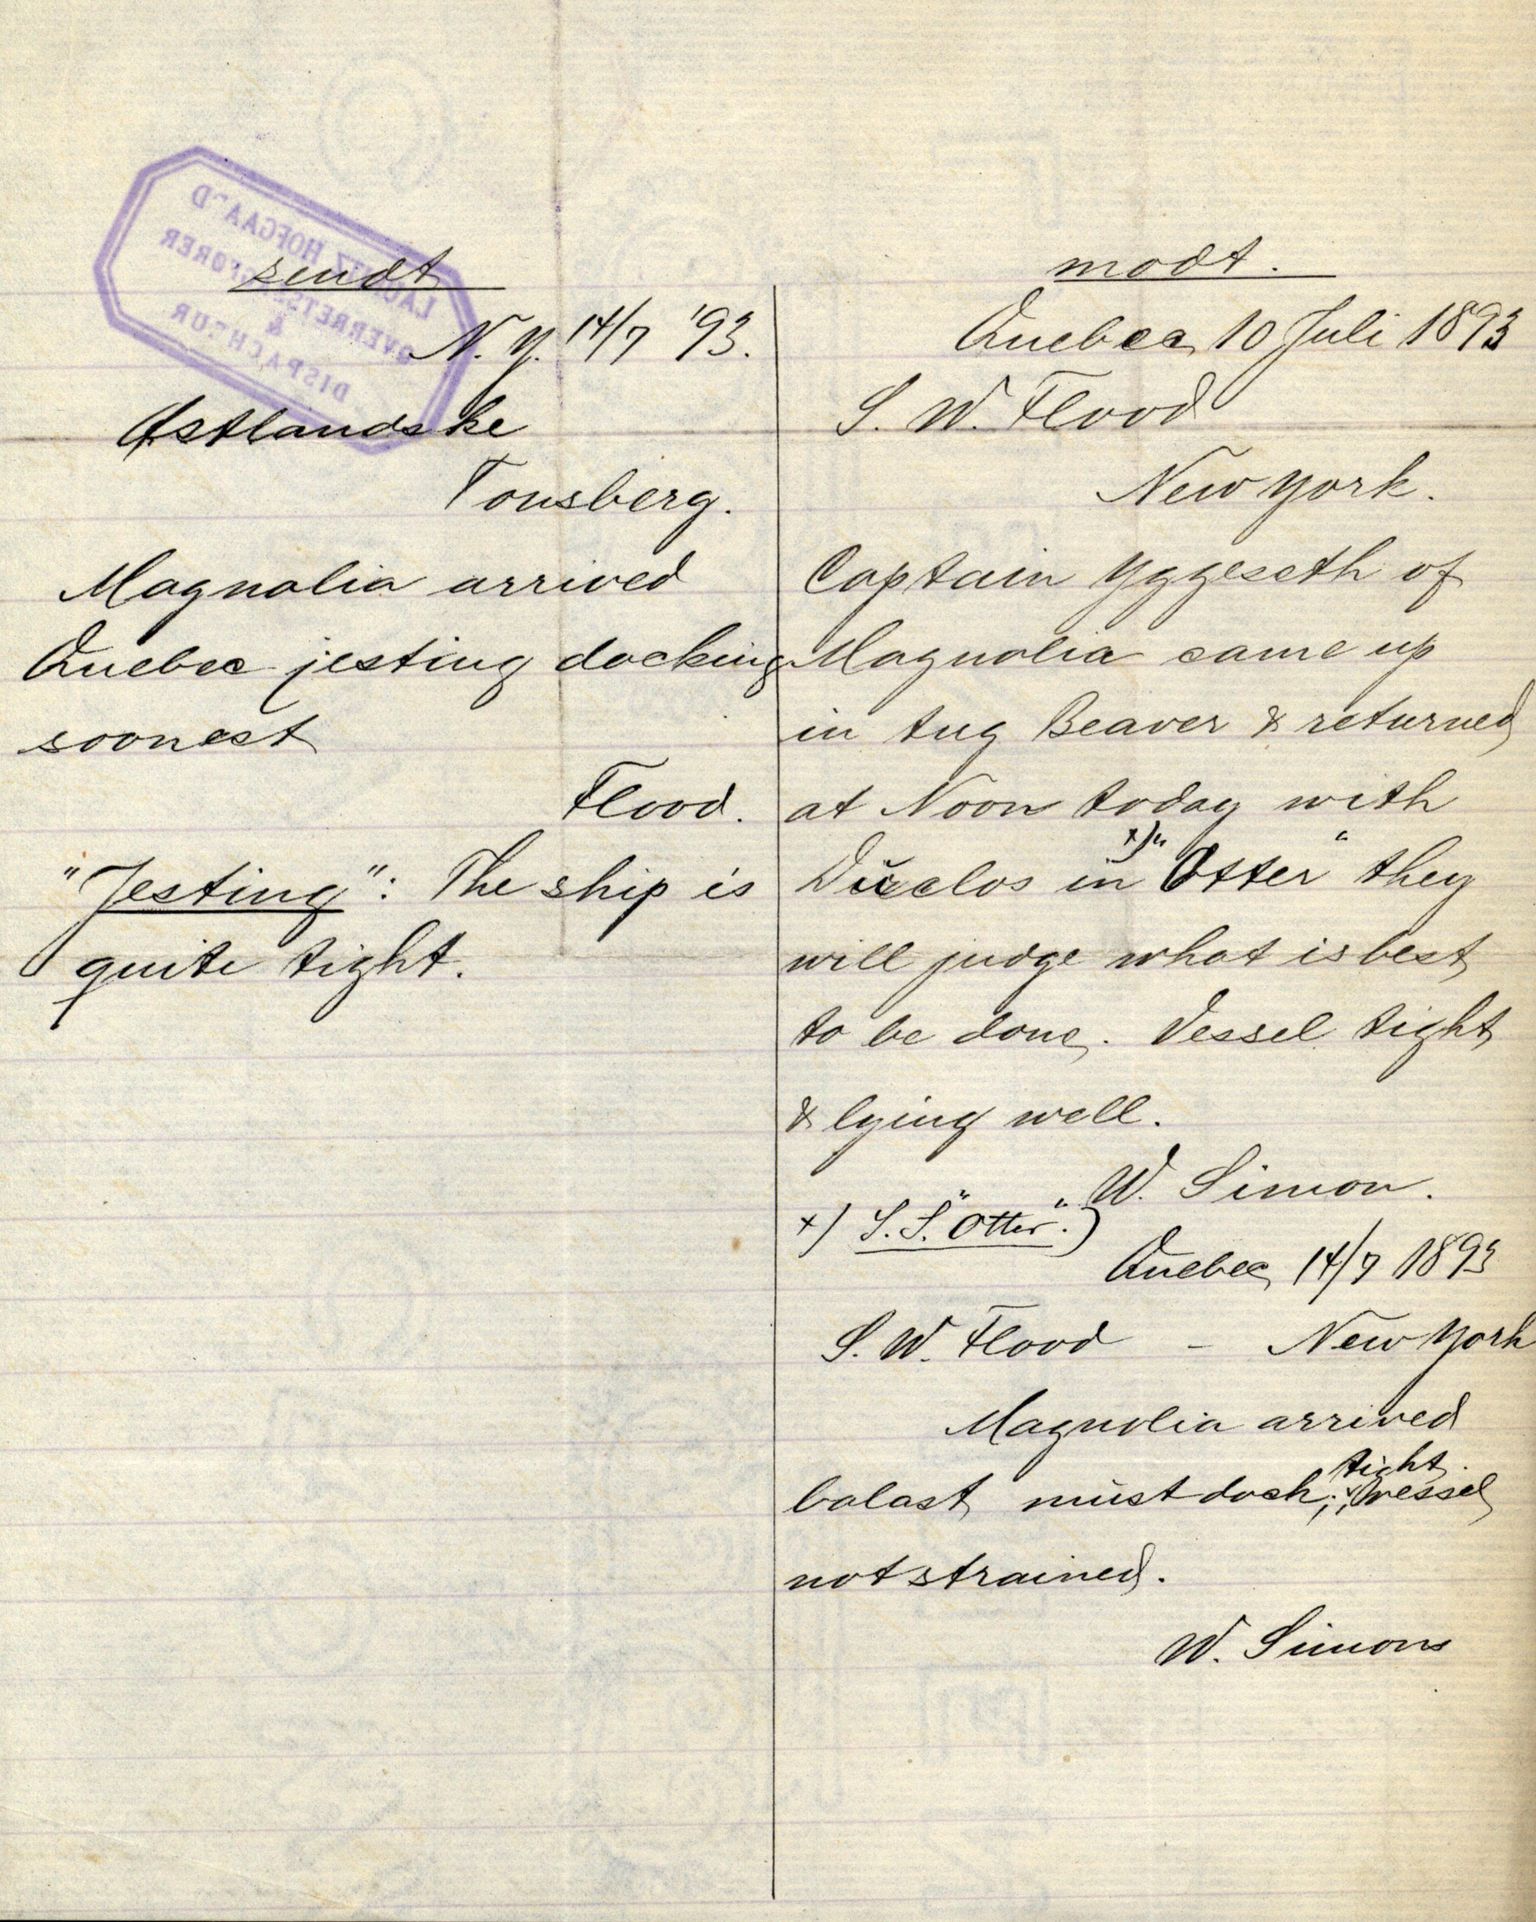 sendt
N. Y. 14/7 '93.
Østlandske
Tonsberg.
Magnolia arrived
Quebec jesting docking
soonest
Flood.
"Jesting": The ship is
quite tight.
modt.
Quebec 10 Juli 1893
S. W. Flood
New York.
Captain Yggeseth of
Magnolia came up
in tug Beaver & returned
at Noon today with
Duclos in x) "Otter" they
will judge what is best
to be done. Vessel tight
& lying well.
W. Simon.
x) S. S. "Otter".)
Quebec 14/7 1893
S. W. Flood - New York
Magnolia arrived
tight
balast must dock; vessel
not strained.
W. Simons
HOFGAARD
OVERRETSSAGFØRER
&
DISPACHEUR